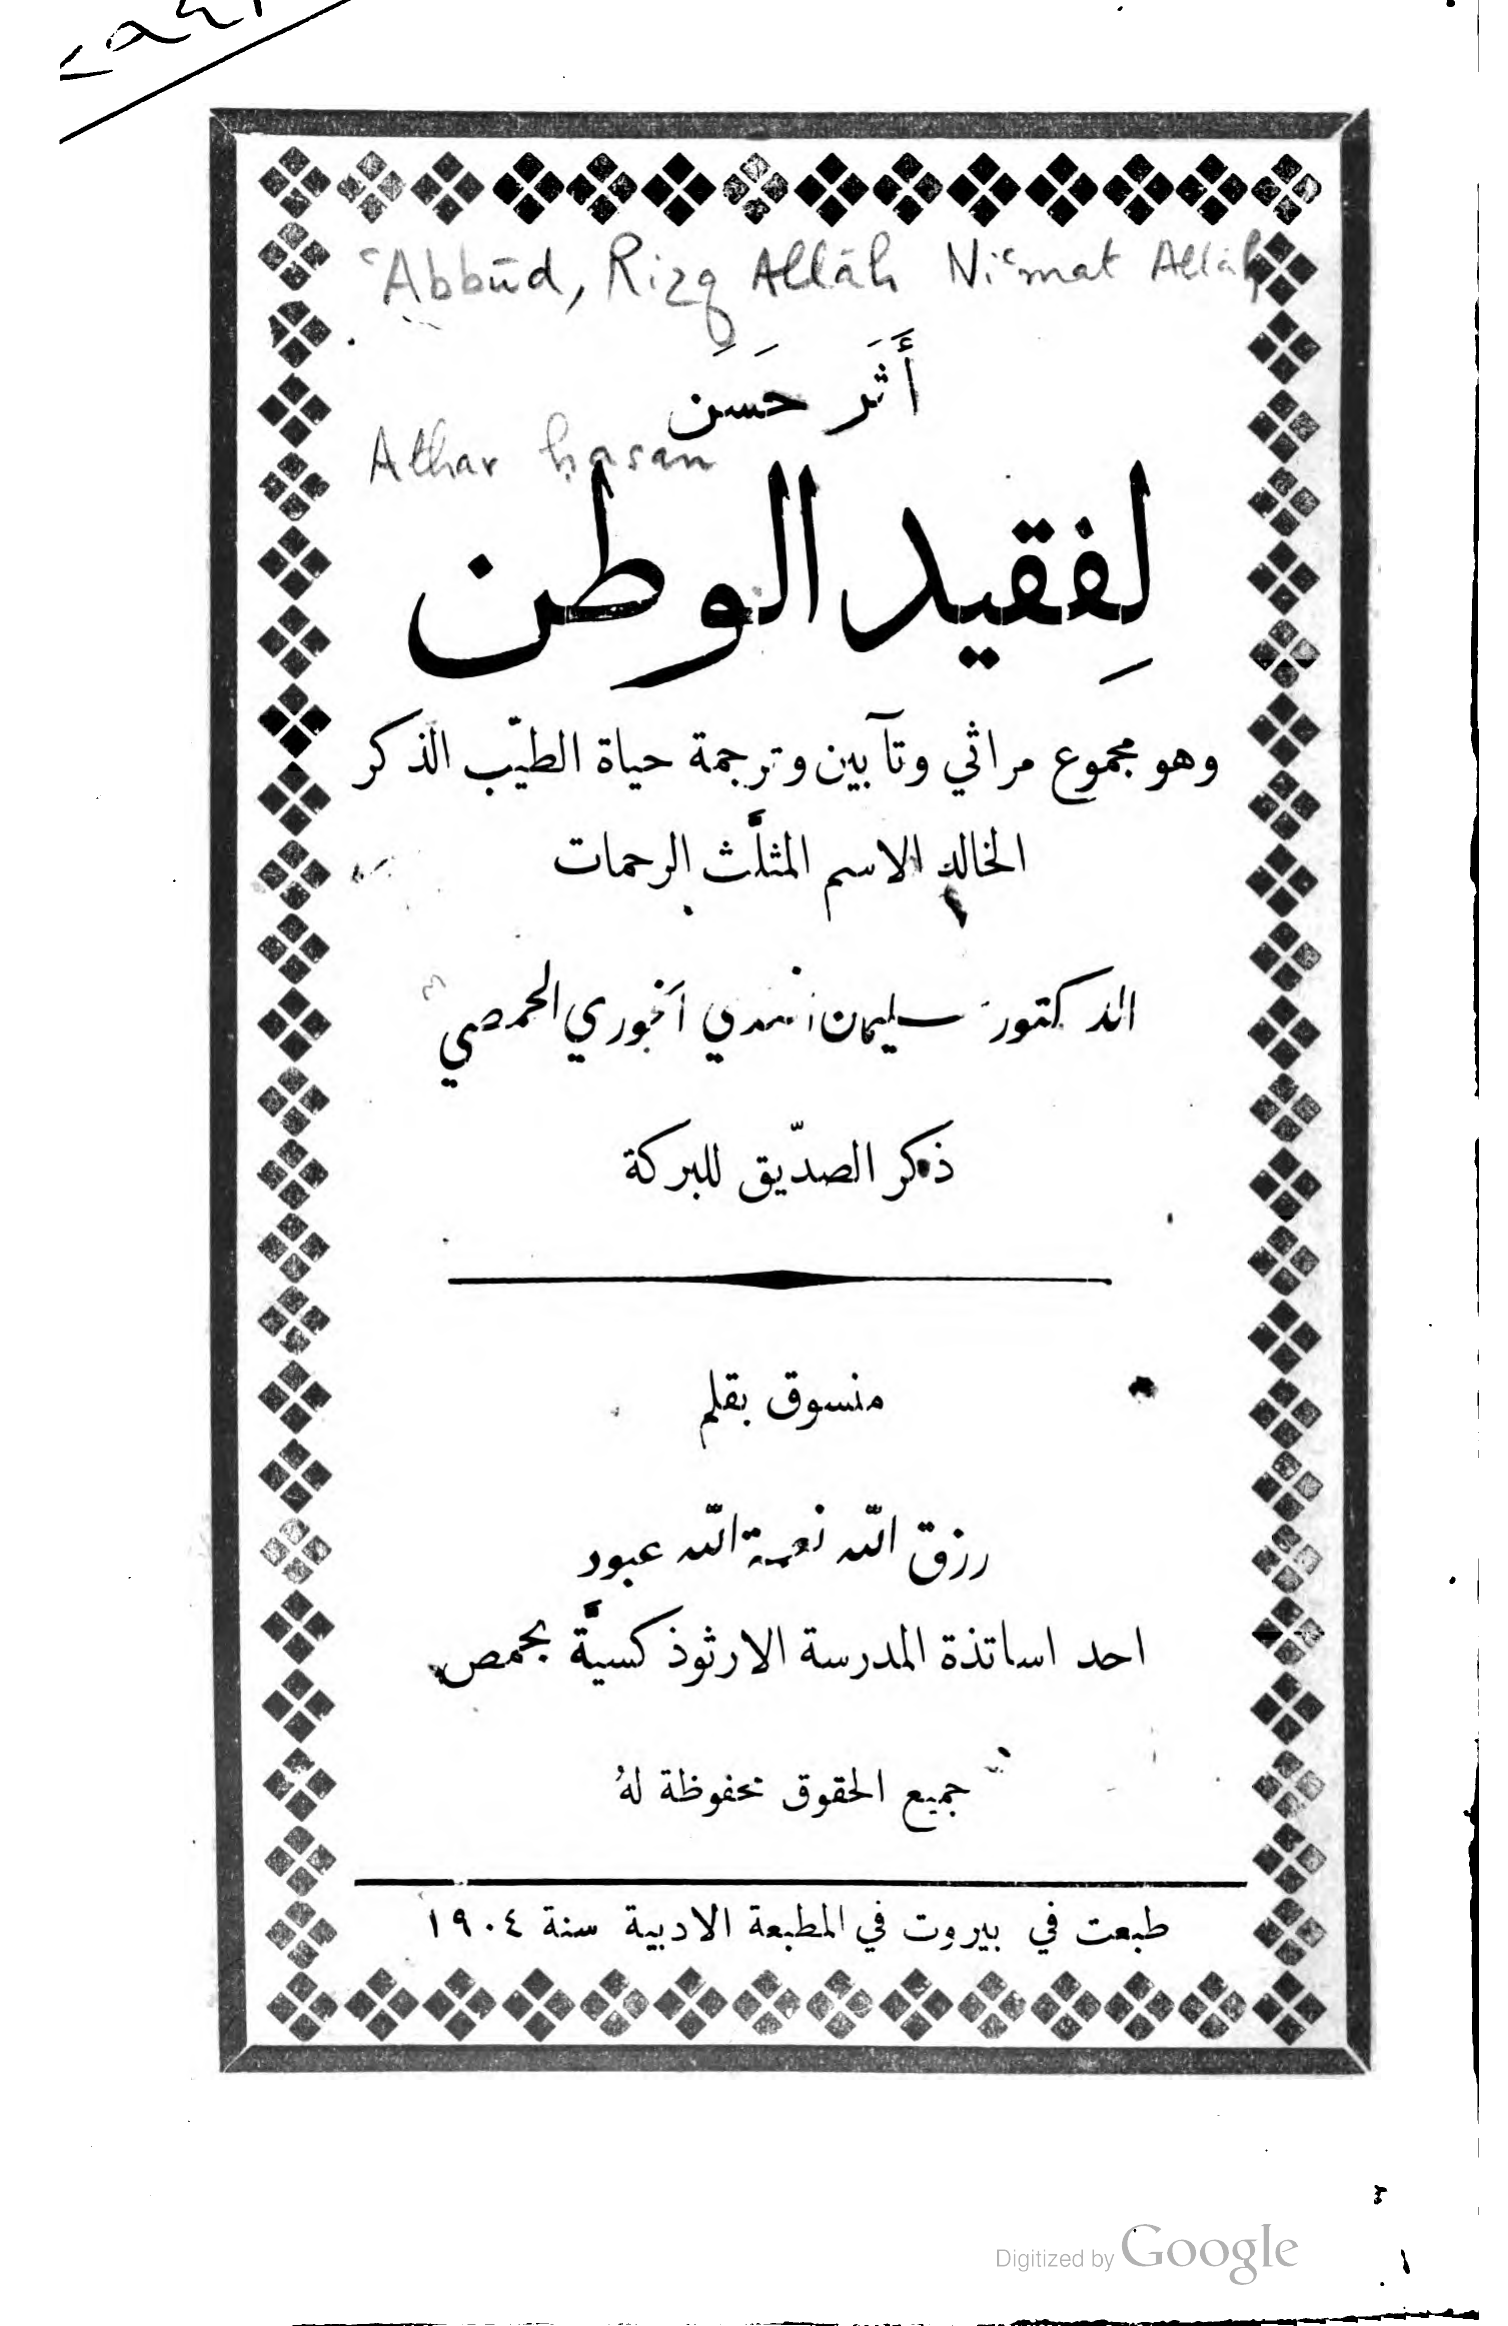 ʿAbbūd, Rizq Allāh Niʿmat Allāh
أَثَر حَسَن
Athar ḥasan
لِفقيد الوطن
وهو مجموع مراثي وتآبين وترجمة حياة الطيّب الذكر
الخالد الاسم المثلَّث الرحمات
الدكتور سليمان افندي الخوري الحمصي
ذكر الصدّيق للبركة
منسوق بقلم
رزق الله نعمة الله عبود
احد اساتذة المدرسة الارثوذكسيَّة بحمص
جميع الحقوق محفوظة لهُ
طبعت في بيروت في المطبعة الادبية سنة ١٩٠٤
Digitized by Google